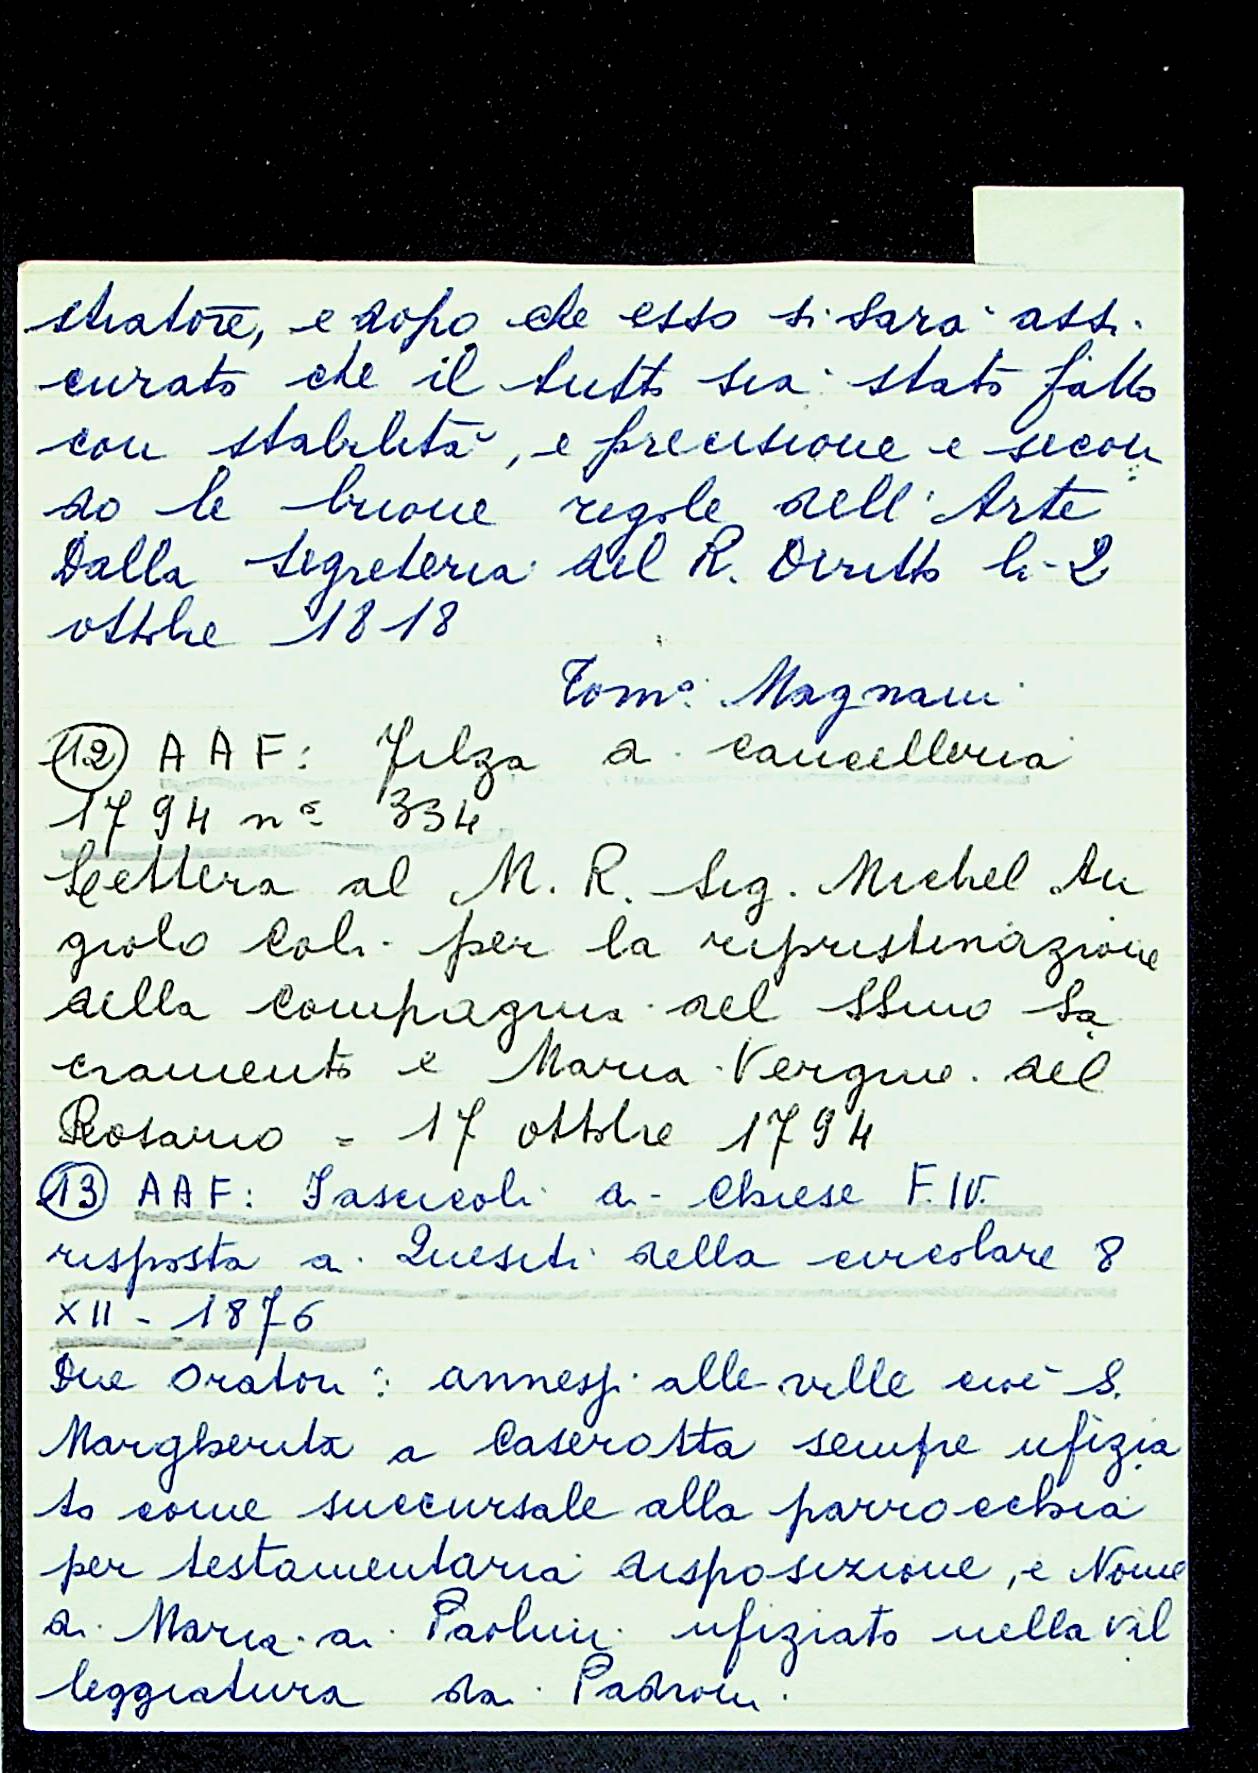 stratore, e dopo che esso si sarà assi-
curato che il tutto sia stato fatto
con stabilità, e precisione e secon
do le buone regole dell'Arte
Dalla Segreteria del R. Diritto li-2
ottobre 1818
Tomo: Magnani
(12) AAF: Filza di cancelleria
1794 n° 334
Lettera al M. R. Sig. Michel An
giolo Coli per la ripristinazione
della Compagnia del SSmo Sa
cramento e Maria Vergine del
Rosario = 17 ottobre 1794
(13) AAF: Fascicoli di Chiese F. IV.
risposta ai Quesiti della circolare 8
XII - 1876
Due Oratori: annessi alle ville cioè S.
Margherita a Caserotta sempre ufizia
to come succursale alla parrocchia
per testamentaria disposizione, e Nome
di Maria ai Paolini ufiziato nella vil
leggiatura dai Padroni.